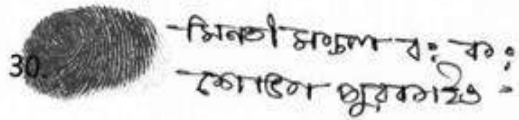 30. মিনতী মণ্ডল বঃ কঃ
গোপাল পুরকাইত